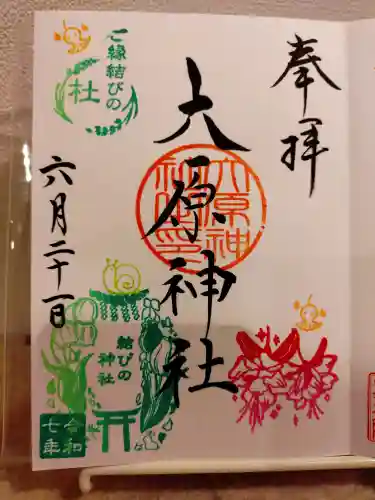 奉拝
大原神社
大原神
社之印
ご縁結びの
杜
六月二十一日
結びの
神社
令和
七年